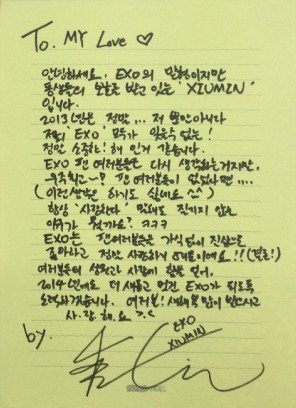 To. MY Love ♡
안녕하세요, EXO의 맏형이지만
동생들의 보호를 받고 있는 'XIUMIN'
입니다.
2013년은 정말... 저 뿐만아니라
저희 EXO 모두가 잊을수 없는!
정말 소중한! 해 인거 같습니다.
EXO 팬 여러분들은 다시 생각하는거지만,
우주최고~! 팬 여러분들이 없었다면....
(이런생각은 하기도 싫네요 ^^)
항상 '사랑한다' 말해도 질리지 않는
이유가 뭘까요? ㅋㅋㅋ
EXO는 팬여러분들은 가식없이 진심으로
좋아하고 정말 사랑하게
여러분들의 성원과 사랑에 힘을 얻어,
2014년에도 더 새롭고 멋진 EXO가 되도록
노력하겠습니다. 여러분! 새해복 많이 받으시고
사.랑.해.요 >.<
by.
EXO
XIUMIN